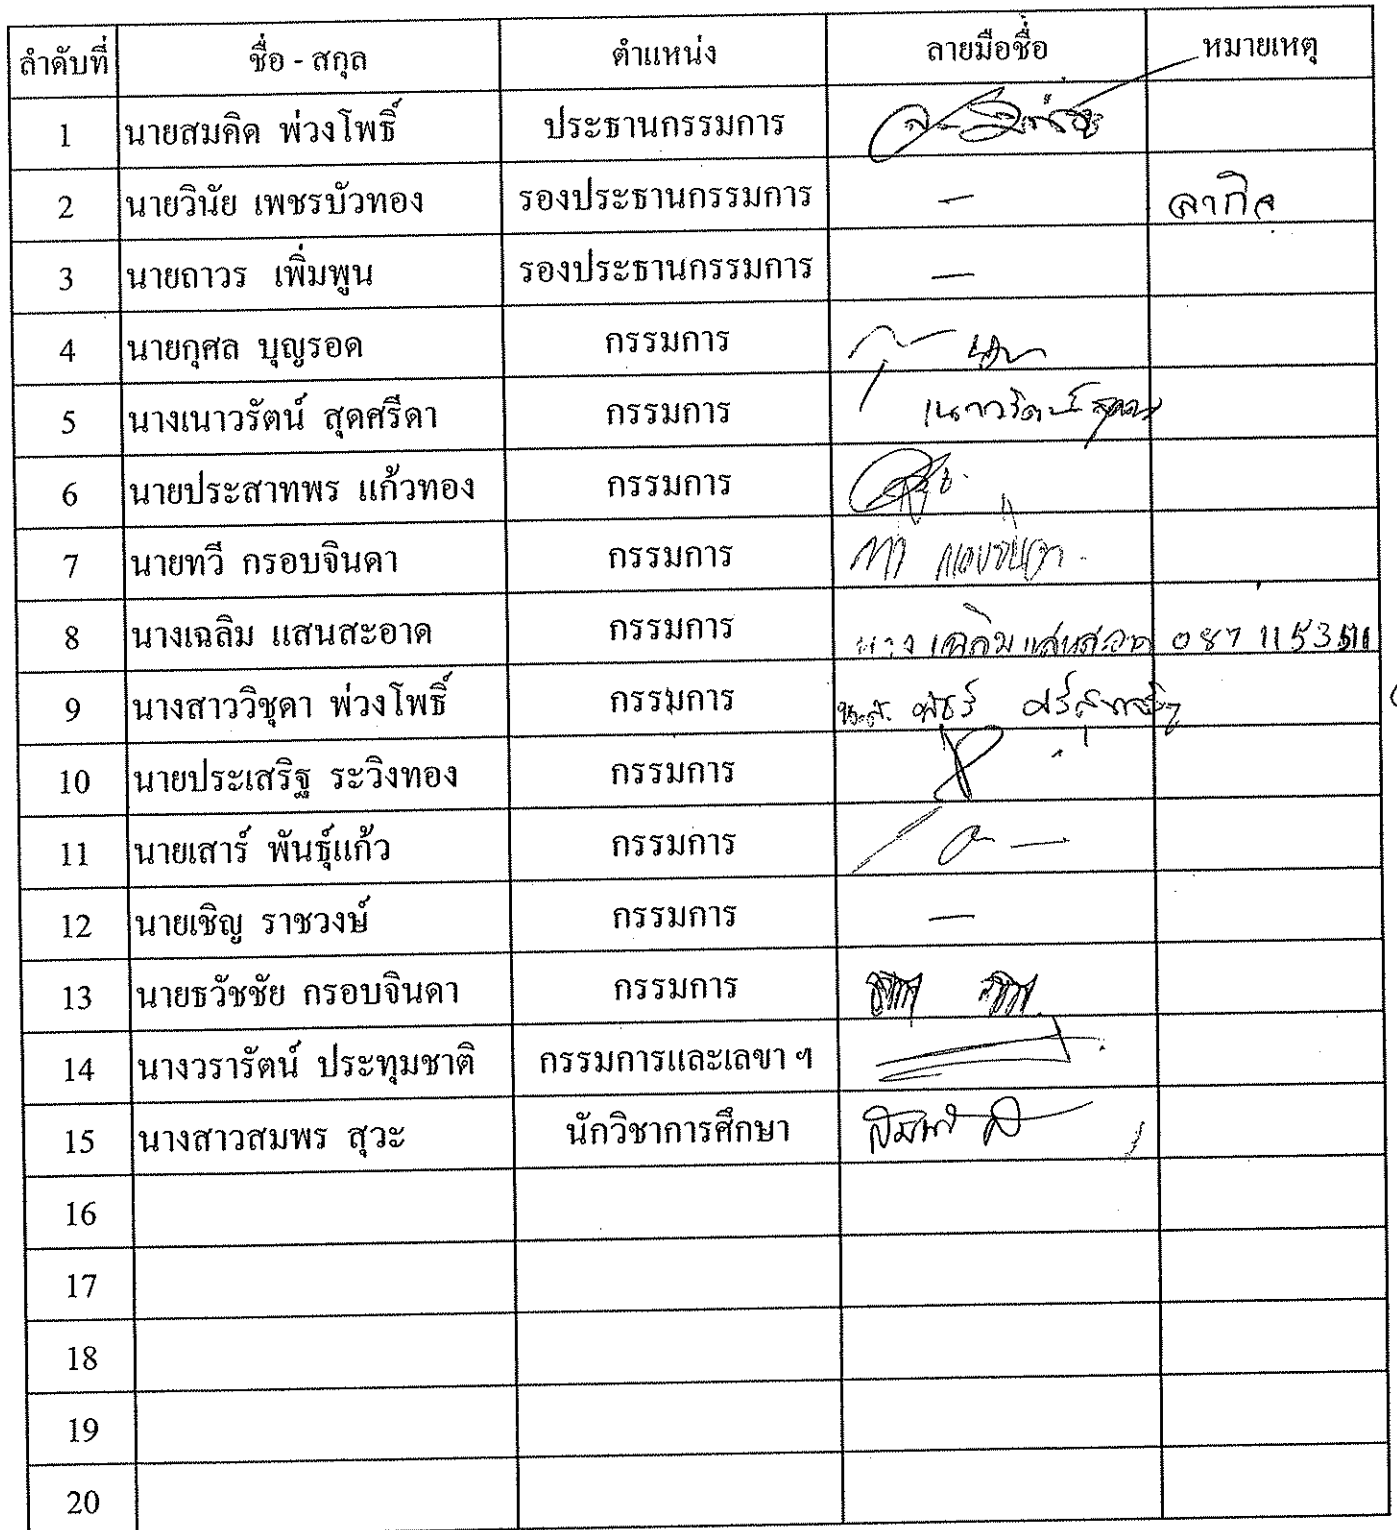 ลำดับที่ ชื่อ - สกุล ตำแหน่ง ลายมือชื่อ หมายเหตุ
1 นายสมคิด พ่วงโพธิ์ ประธานกรรมการ
2 นายวินัย เพชรบัวทอง รองประธานกรรมการ — ลากิจ
3 นายถาวร เพิ่มพูน รองประธานกรรมการ —
4 นายกุศล บุญรอด กรรมการ
5 นางเนาวรัตน์ สุดศรีดา กรรมการ เนาวรัตน์
6 นายประสาทพร แก้วทอง กรรมการ
7 นายทวี กรอบจินดา กรรมการ
8 นางเฉลิม แสนสะอาด กรรมการ นาง เฉลิม แสนสะอาด
9 นางสาววิชุดา พ่วงโพธิ์ กรรมการ น.ส.
10 นายประเสริฐ ระวิงทอง กรรมการ
11 นายเสาร์ พันธุ์แก้ว กรรมการ
12 นายเชิญ ราชวงษ์ กรรมการ —
13 นายธวัชชัย กรอบจินดา กรรมการ
14 นางวรารัตน์ ประทุมชาติ กรรมการและเลขา ฯ
15 นางสาวสมพร สุวะ นักวิชาการศึกษา
16
17
18
19
20